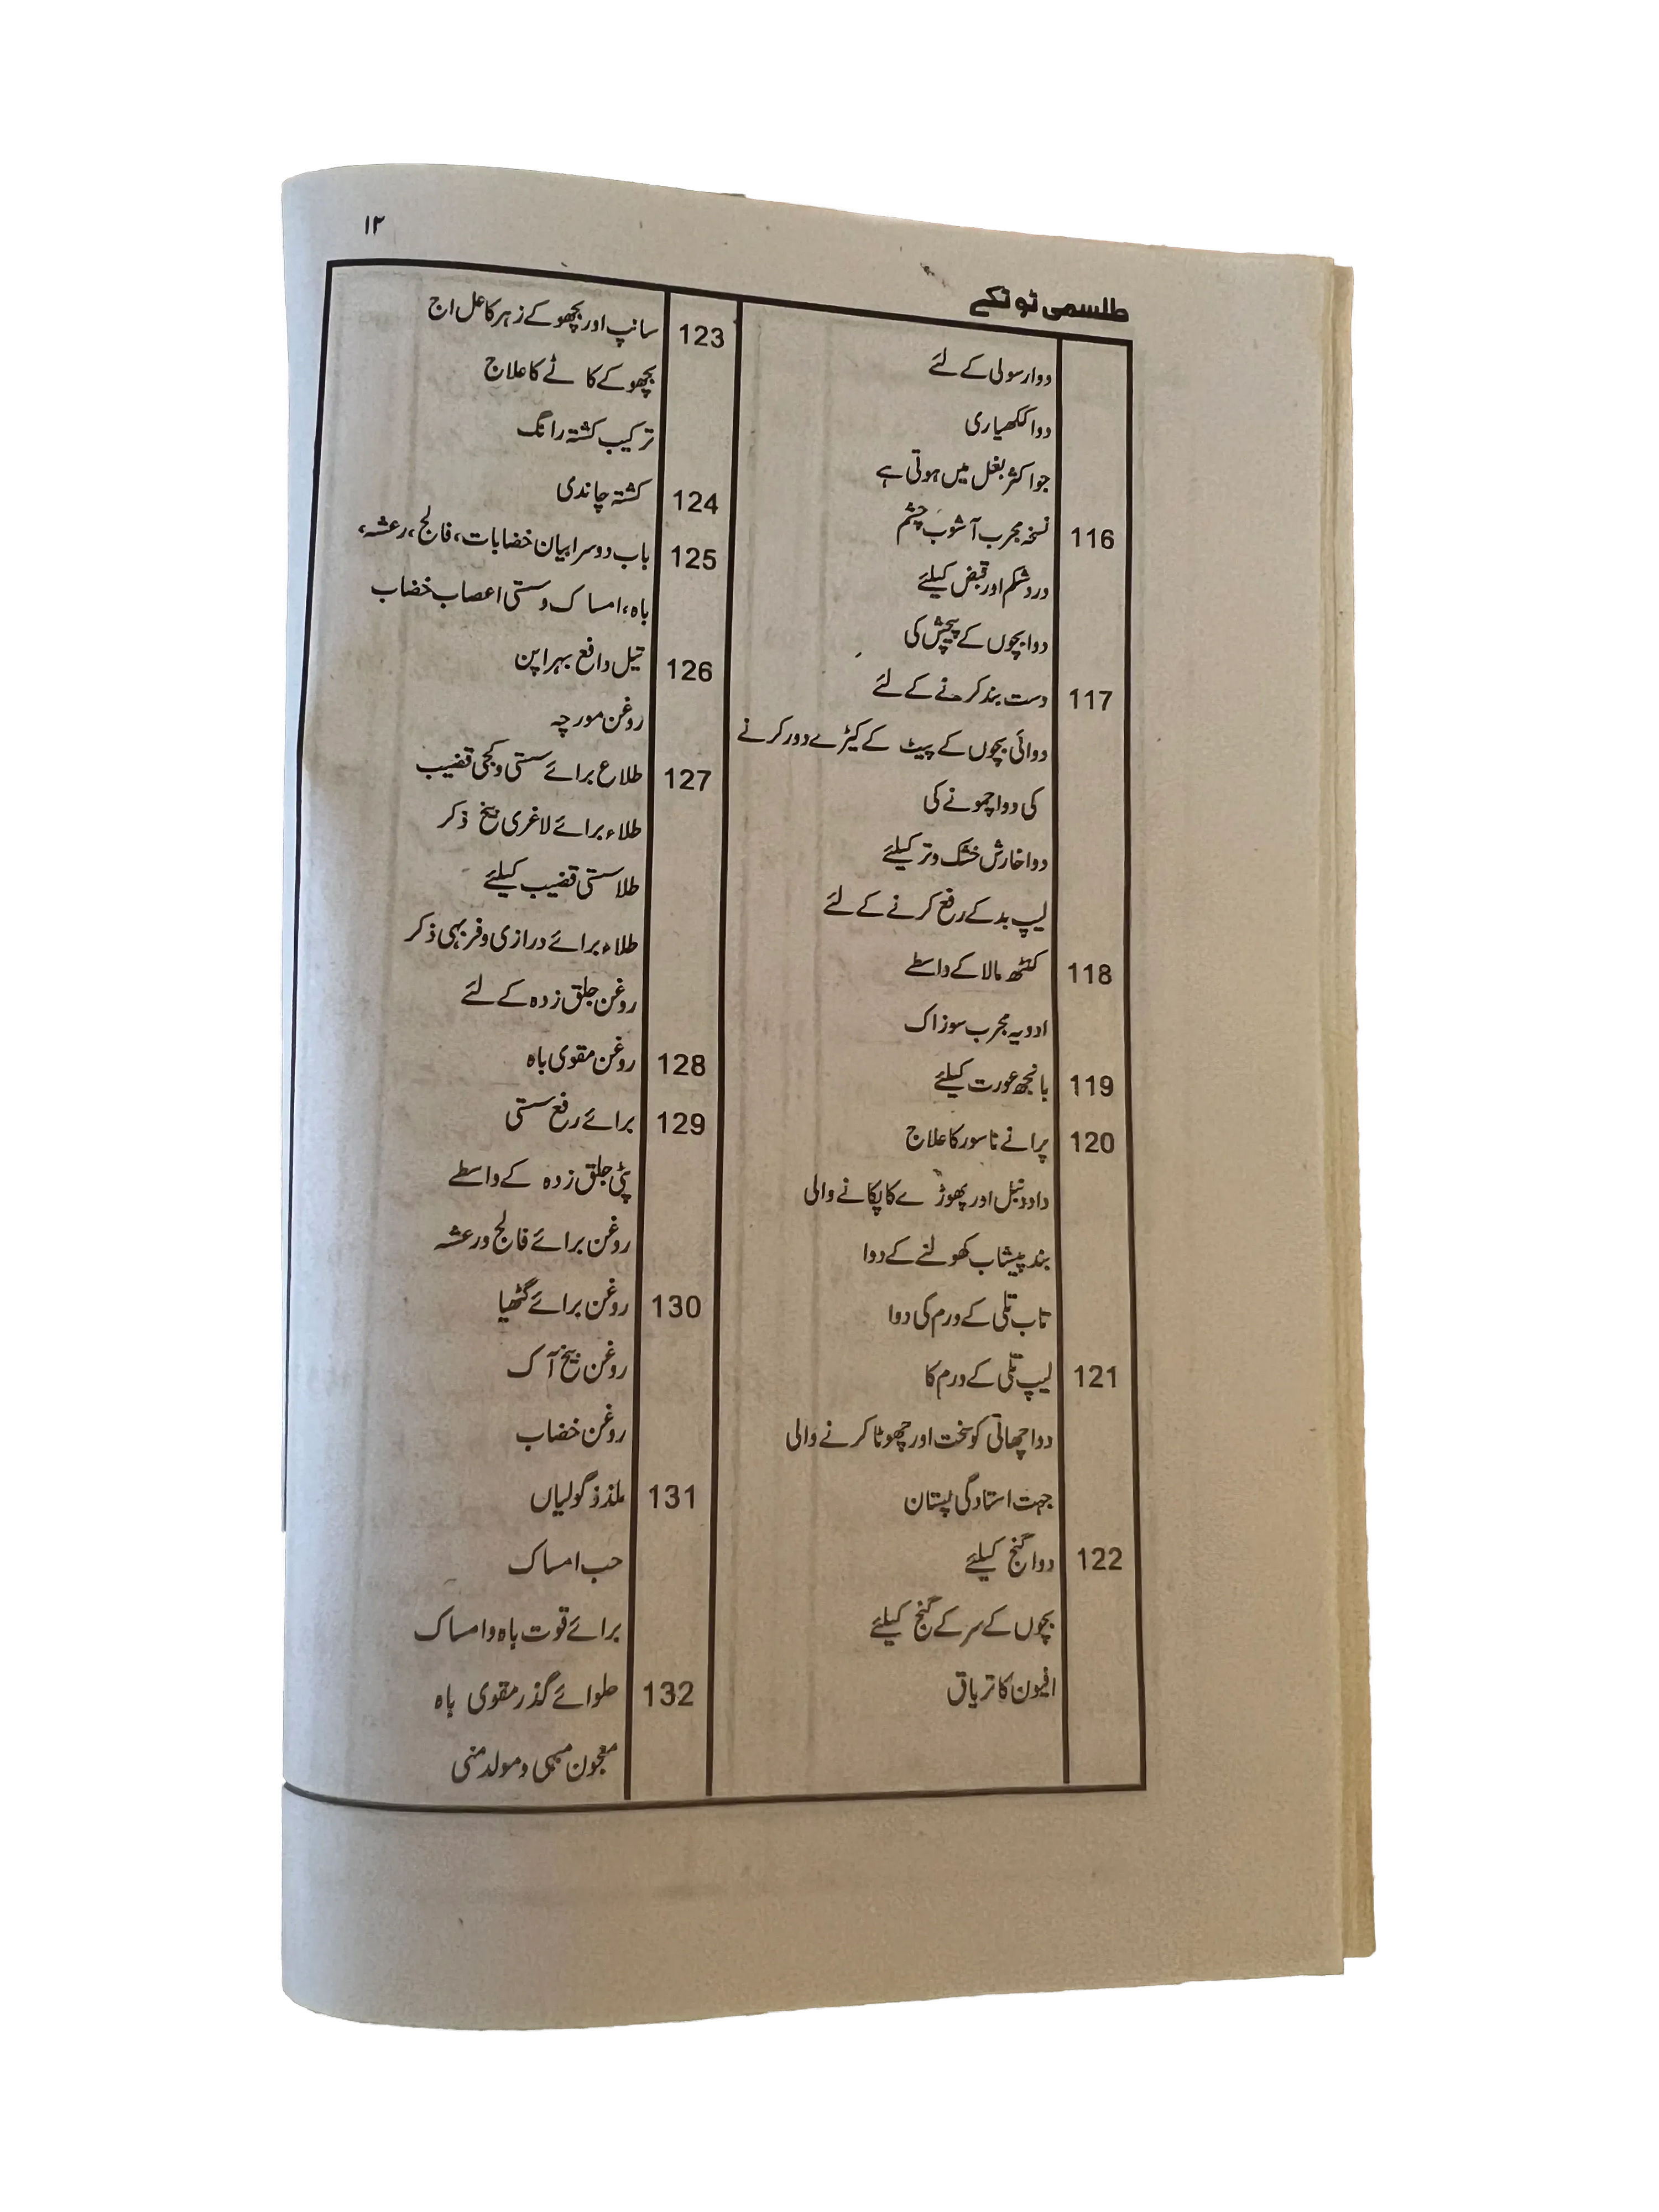 ۱۲
طلسمی ٹوٹکے
دوا رسولی کے لئے
دوا ککھیاری
جو اکثر بغل میں ہوتی ہے
116 نسخہ مجرب آشوب چشم
درد شکم اور قبض کیلئے
دوا بچوں کے پیچش کی
117 دست بند کرنے کے لئے
دوائی بچوں کے پیٹ کے کیڑے دور کرنے
کی دوا چمونے کی
دوا خارش خشک و تر کیلئے
لیپ بد کے رفع کرنے کے لئے
118 کنٹھ مالا کے واسطے
ادویہ مجرب سوزاک
119 بانجھ عورت کیلئے
120 پرانے ناسور کا علاج
داد دنبل اور پھوڑے کا پکانے والی
بند پیشاب کھولنے کے دوا
تاب تلی کے ورم کی دوا
121 لیپ تلی کے ورم کا
دوا چھاتی کو سخت اور چھوٹا کرنے والی
جہت استادگی پستان
122 دوا گنج کیلئے
بچوں کے سر کے گنج کیلئے
افیون کا تریاق
123 سانپ اور بچھو کے زہر کا عل اج
بچھو کے کاٹے کا علاج
ترکیب کشتہ رانگ
124 کشتہ چاندی
125 باب دوسرا بیان خضابات، فالج، رعشہ،
باہ، امساک و سستی اعصاب خضاب
126 تیل دافع بہراپن
روغن مورچہ
127 طلاع برائے سستی و کجی قضیب
طلاء برائے لاغری بیخ ذکر
طلا سستی قضیب کیلئے
طلاء برائے درازی و فربہی ذکر
روغن جلق زدہ کے لئے
128 روغن مقوی باہ
129 برائے رفع سستی
پٹی جلق زدہ کے واسطے
روغن برائے فالج و رعشہ
130 روغن برائے گٹھیا
روغن بیخ آک
روغن خضاب
131 ملذذ گولیاں
حب امساک
برائے قوت باہ و امساک
132 حلوائے گذر مقوی باہ
معجون مبہی و مولد منی